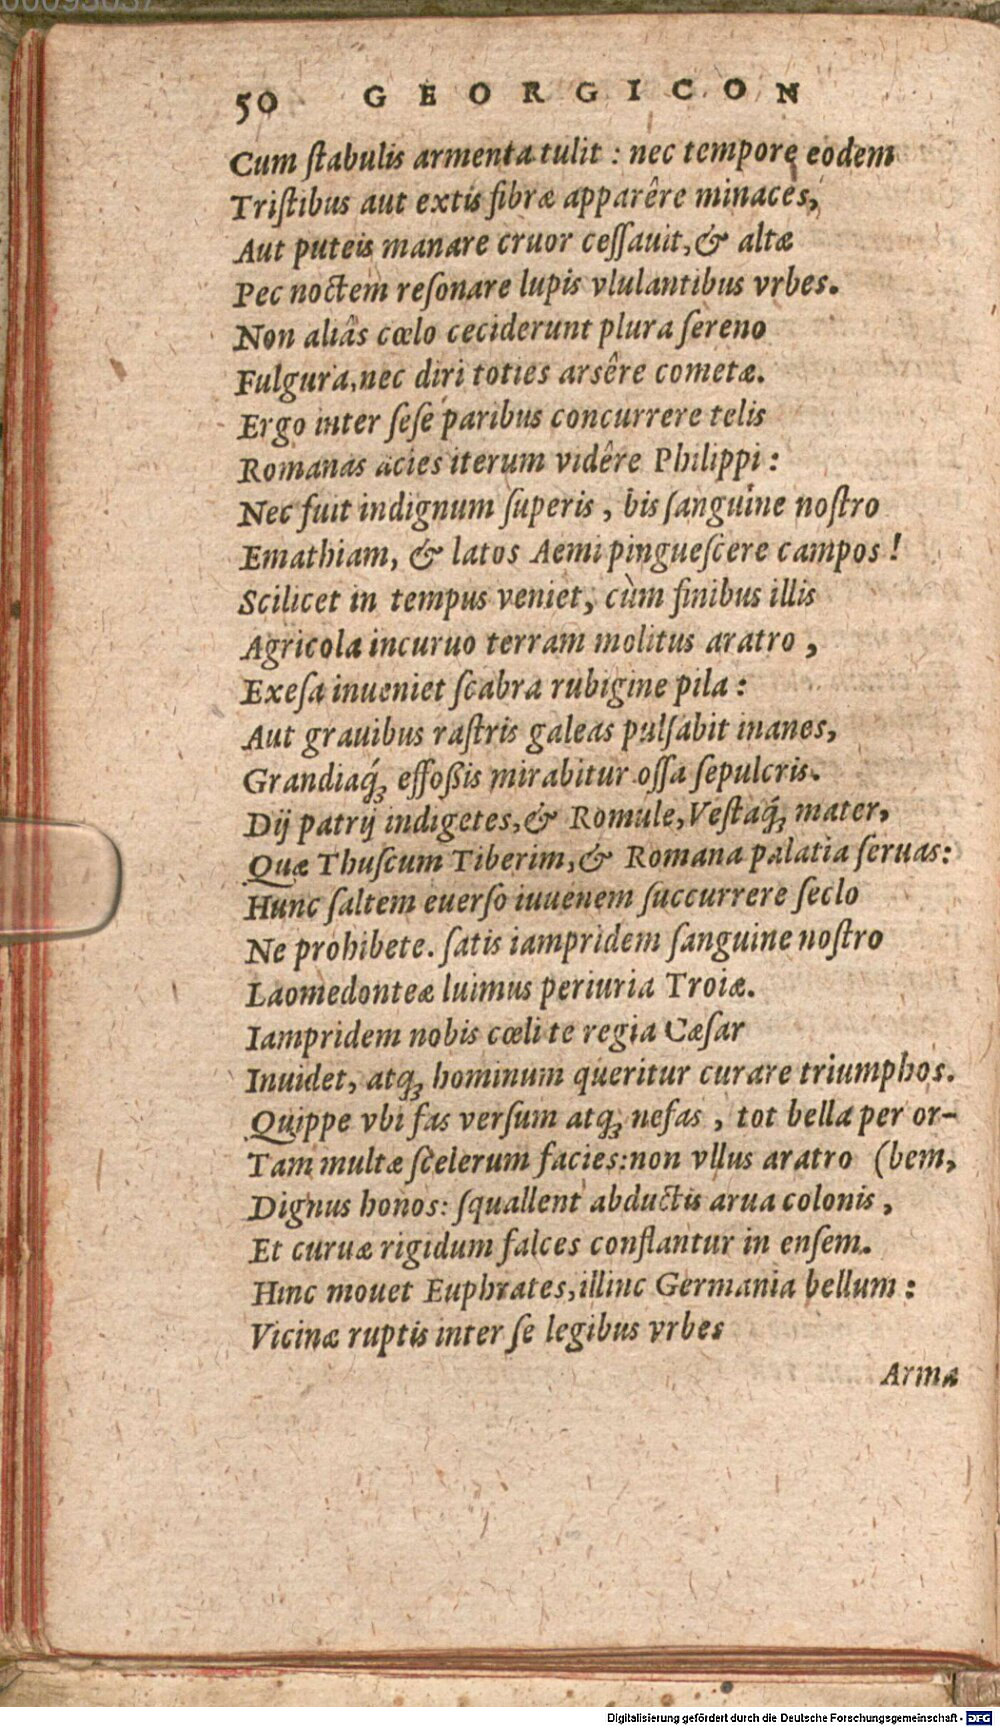 50 GEORGICON
Cum ſtabulis armenta tulit : nec tempore eodem
Triſtibus aut extis fibræ apparêre minaces,
Aut puteis manare cruor ceſſauit, & altæ
Pec noctem reſonare lupis vlulantibus vrbes.
Non aliâs cœlo ceciderunt plura ſereno
Fulgura, nec diri toties arsêre cometæ.
Ergo inter ſeſe paribus concurrere telis
Romanas acies iterum vidêre Philippi :
Nec fuit indignum ſuperis , bis ſanguine noſtro
Emathiam, & latos Aemi pingueſcere campos !
Scilicet in tempus veniet, cùm finibus illis
Agricola incuruo terram molitus aratro ,
Exeſa inueniet ſcabra rubigine pila :
Aut grauibus raſtris galeas pulſabit inanes,
Grandiaq́ꝫ effoßis mirabitur oſſa ſepulcris.
Dij patrij indigetes, & Romule, Veſtaq́ꝫ mater,
Quæ Thuſcum Tiberim, & Romana palatia ſeruas:
Hunc ſaltem euerſo iuuenem ſuccurrere ſeclo
Ne prohibete. ſatis iampridem ſanguine noſtro
Laomedonteæ luimus periuria Troiæ.
Iampridem nobis cœli te regia Cæſar
Inuidet, atqꝫ hominum queritur curare triumphos.
Quippe vbi fas verſum atqꝫ nefas , tot bella per or-
Tam multæ ſcelerum facies: non vllus aratro (bem,
Dignus honos: ſquallent abductis arua colonis ,
Et curuæ rigidum falces conflantur in enſem.
Hinc mouet Euphrates, illinc Germania bellum :
Vicinæ ruptis inter ſe legibus vrbes
Arma
Digitalisierung gefördert durch die Deutsche Forschungsgemeinschaft - DFG